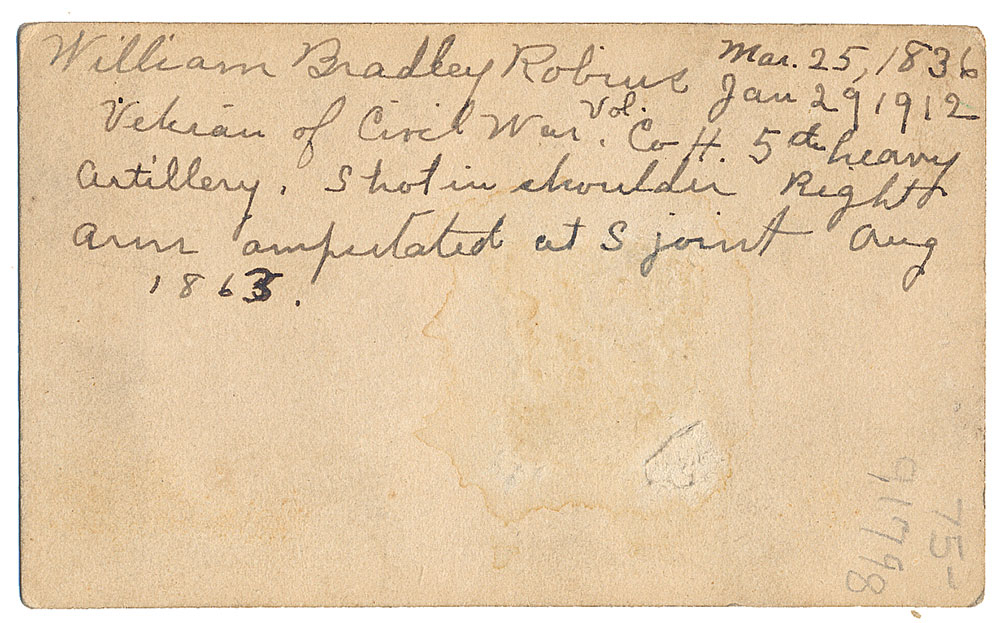 William Bradley Robins Mar. 25, 1836
Jan 29 1912
Veteran of Civil War. Vol. Co H. 5th heavy
Artillery. Shot in shoulder Right
Arm amputated at S joint Aug
1863.
75-
91798